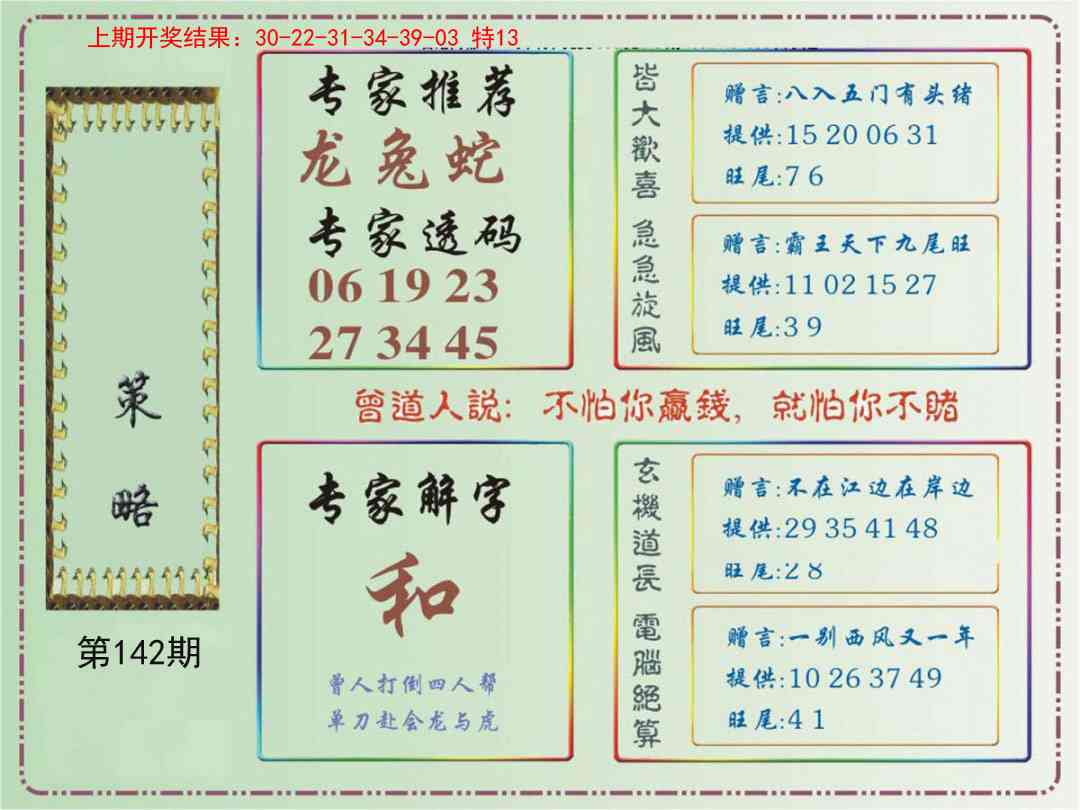 上期开奖结果：30-22-31-34-39-03 特13
策略
第142期
专家推荐
龙兔蛇
专家透码
06 19 23
27 34 45
皆大歡喜
赠言:八入五门有头绪
提供:15 20 06 31
旺尾:7 6
急急旋風
赠言:霸王天下九尾旺
提供:11 02 15 27
旺尾:3 9
曾道人説：不怕你贏錢，就怕你不賭
专家解字
和
曾人打倒四人帮
单刀赴会龙与虎
玄機道長
赠言:不在江边在岸边
提供:29 35 41 48
旺尾:2 8
電腦絕算
赠言:一别西风又一年
提供:10 26 37 49
旺尾:4 1